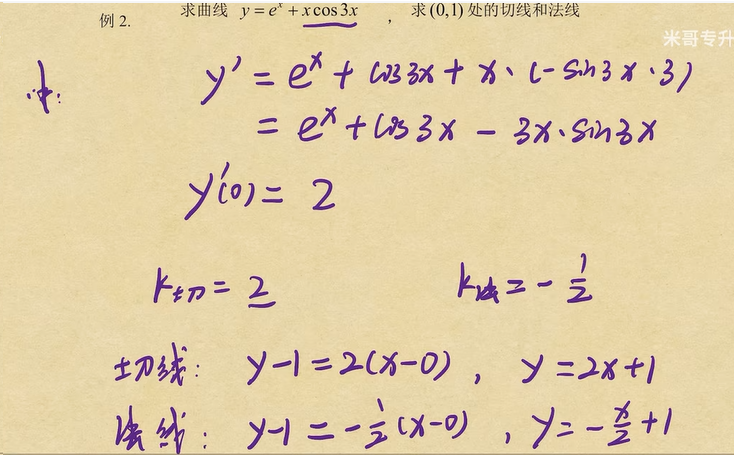 例 2. 求曲线 y = eˣ + x cos 3x , 求 (0,1) 处的切线和法线
米哥专升
y' = eˣ + cos3x + x·(-sin3x·3)
= eˣ + cos3x - 3x·sin3x
y'(0) = 2
k切 = 2 k法 = - 1/2
切线: y-1 = 2(x-0) , y = 2x+1
法线: y-1 = -1/2(x-0) , y = -x/2+1